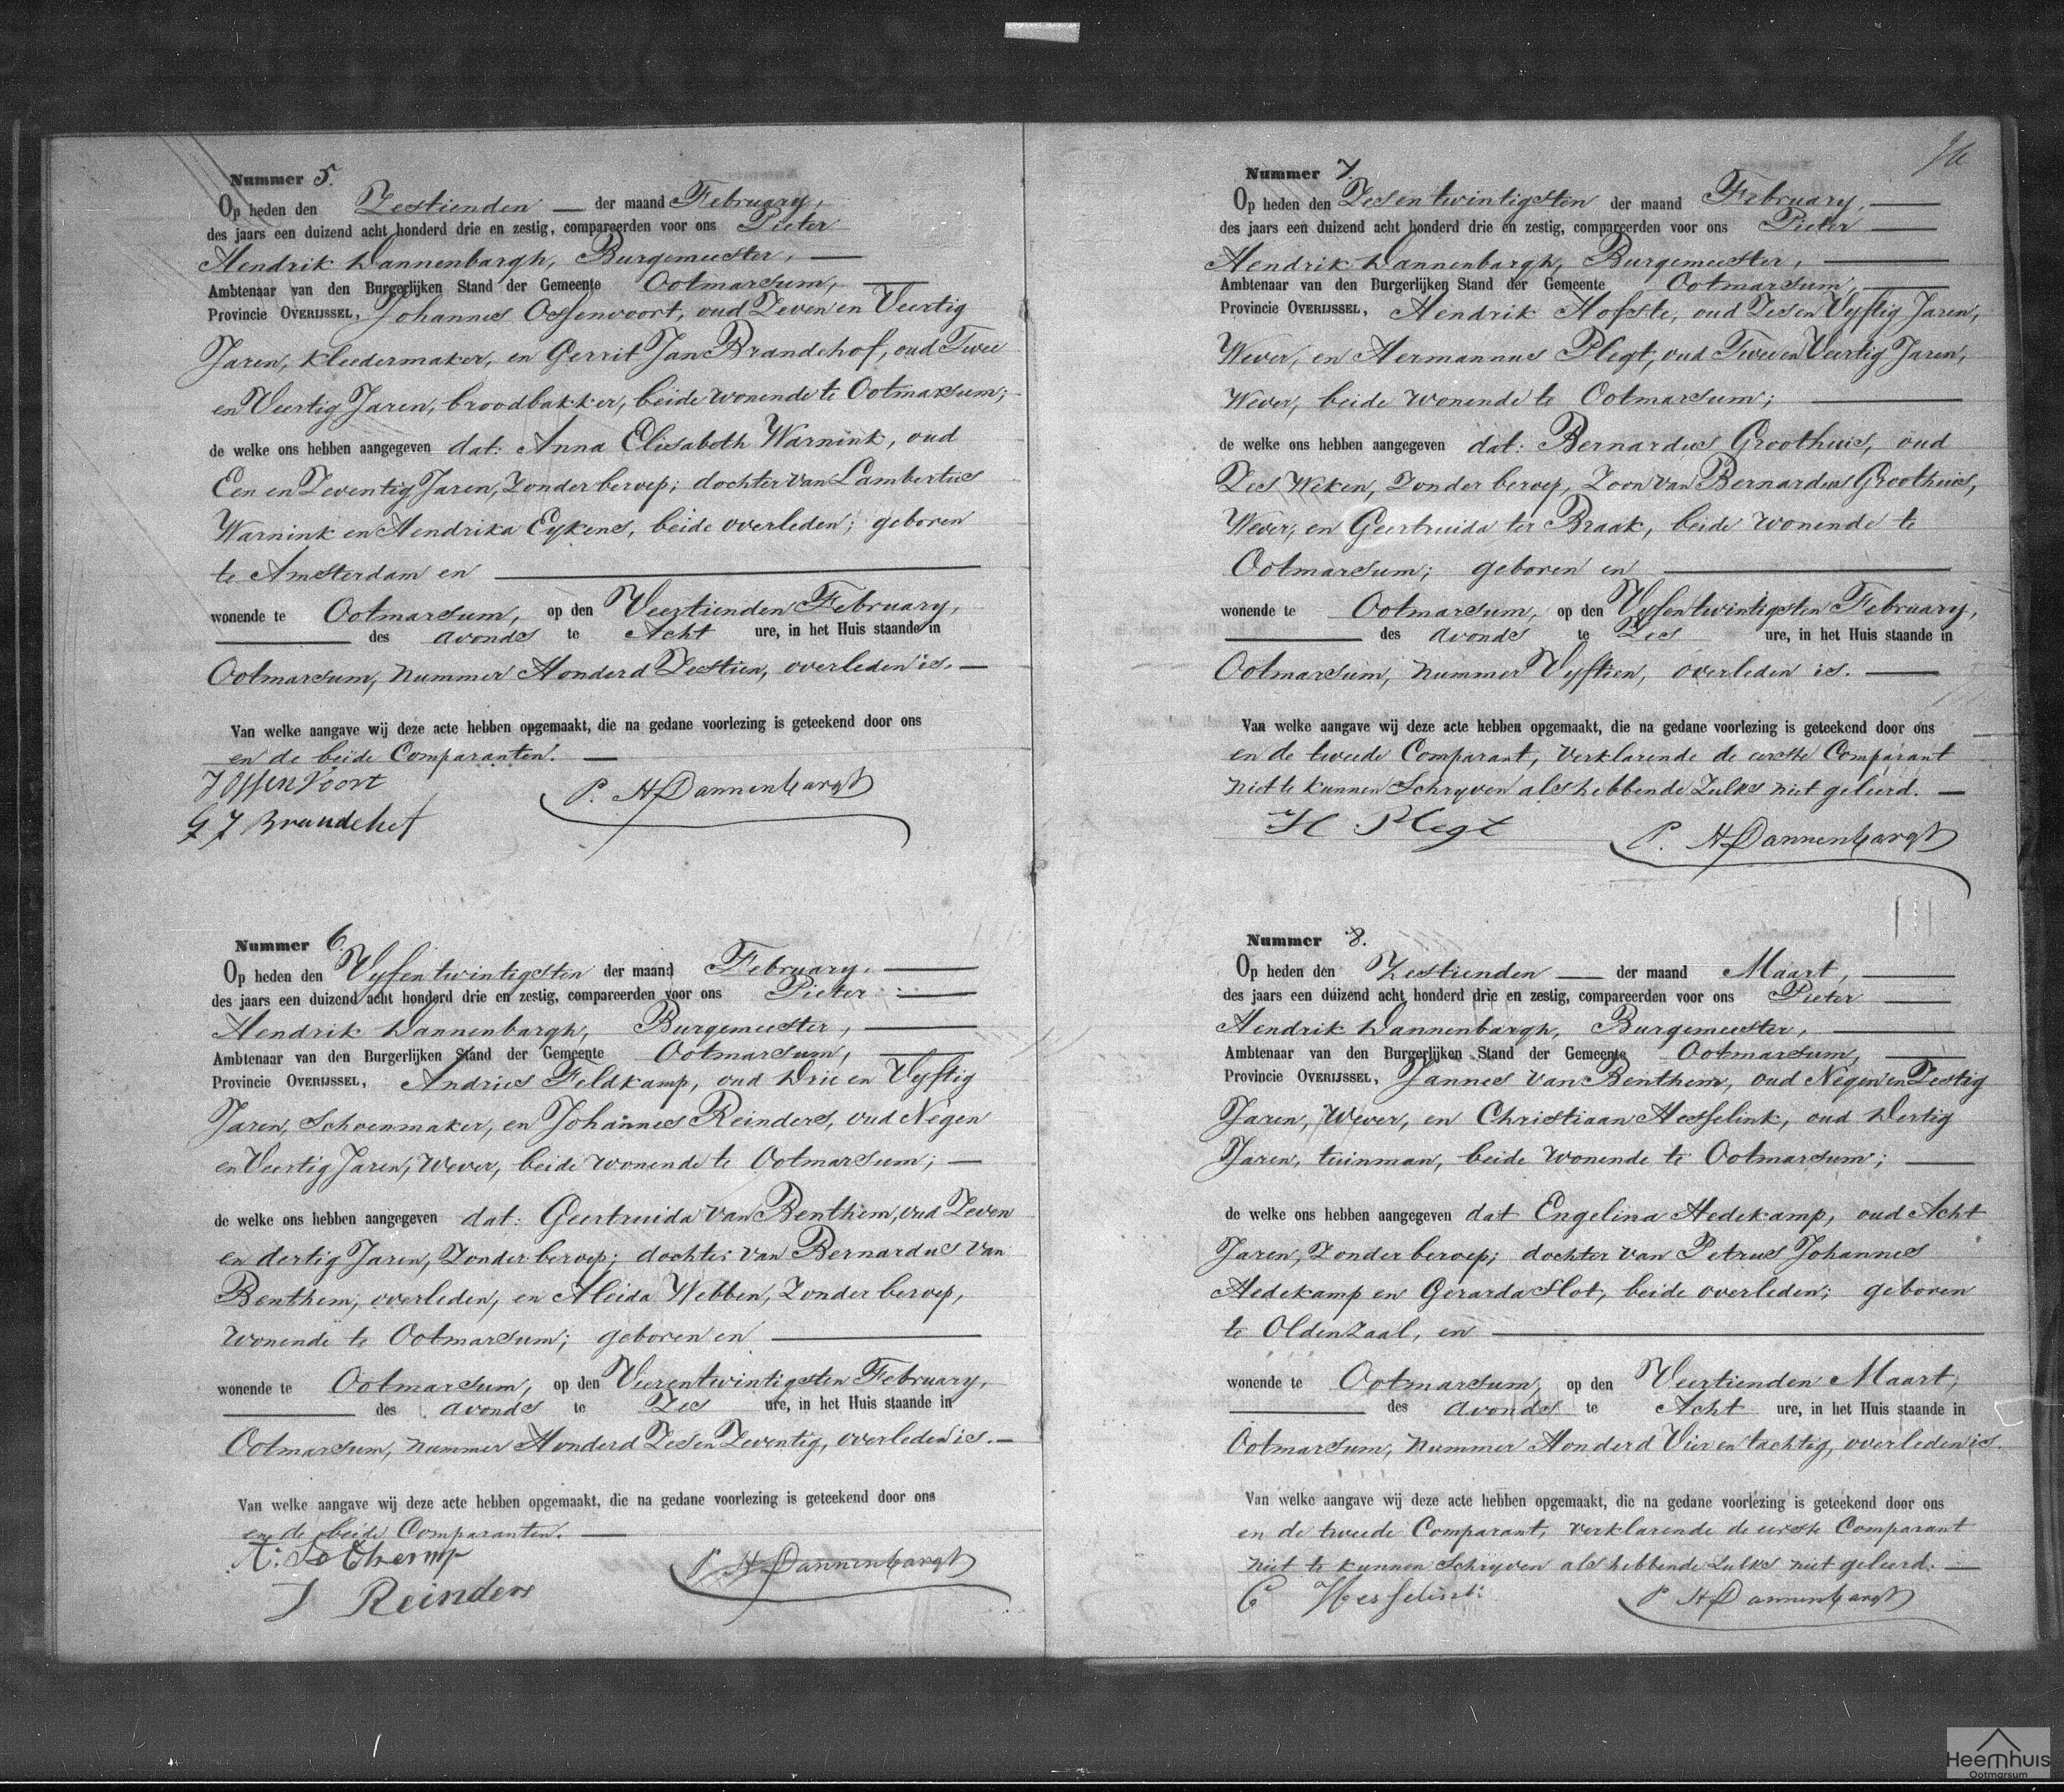 Nummer 5.
Op heden den Zestienden — der maand February,
des jaars een duizend acht honderd drie en zestig, compareerden voor ons Pieter
Hendrik Dannenbargh, Burgemeester, —
Ambtenaar van den Burgerlijken Stand der Gemeente Ootmarsum, —
Provincie OVERIJSSEL, Johannes Ossenvoort, oud Zeven en Veertig
Jaren, kleedermaker, en Gerrit Jan Brandehof, oud Twee
en Veertig Jaren, broodbakker, beide wonende te Ootmarsum;
de welke ons hebben aangegeven dat: Anna Elisabeth Warnink, oud
Een en Zeventig Jaren, Zonder beroep; dochter van Lambertus
Warnink en Hendrika Eykens, beide overleden; geboren
te Amsterdam en —
wonende te Ootmarsum, op den Veertienden February,
— des avonds te Acht ure, in het Huis staande in
Ootmarsum, nummer Honderd Zestien, overleden is. —
Van welke aangave wij deze acte hebben opgemaakt, die na gedane voorlezing is geteekend door ons
en de beide Comparanten. —
J Ossenvoort
P. H Dannenbargh
G J Brandehof
Nummer 6.
Op heden den Vyfentwintigsten der maand February. —
des jaars een duizend acht honderd drie en zestig, compareerden voor ons Pieter —
Hendrik Dannenbargh, Burgemeester, —
Ambtenaar van den Burgerlijken Stand der Gemeente Ootmarsum, —
Provincie OVERIJSSEL, Andries Feldkamp, oud Drie en Vyftig
Jaren, Schoenmaker, en Johannes Reinders, oud Negen
en Veertig Jaren, Wever, beide wonende te Ootmarsum; —
de welke ons hebben aangegeven dat: Geertruida van Benthem, oud Zeven
en dertig Jaren, Zonder beroep; dochter van Bernardus van
Benthem, overleden, en Aleida Webben, Zonder beroep,
wonende te Ootmarsum; geboren en —
wonende te Ootmarsum, op den Vierentwintigsten February,
— des avonds te Zes ure, in het Huis staande in
Ootmarsum, nummer Honderd Zes en Zeventig, overleden is. —
Van welke aangave wij deze acte hebben opgemaakt, die na gedane voorlezing is geteekend door ons
en de beide Comparanten. —
P H Dannenbargh
J Reinders
Nummer 7.
Op heden den Zesentwintigsten der maand February, —
des jaars een duizend acht honderd drie en zestig, compareerden voor ons Pieter —
Hendrik Dannenbargh, Burgemeester, —
Ambtenaar van den Burgerlijken Stand der Gemeente Ootmarsum, —
Provincie OVERIJSSEL, Hendrik Hofste, oud Zes en Vyftig Jaren,
Wever, en Hermannus Plegt, oud Twee en Veertig Jaren,
Wever, beide wonende te Ootmarsum; —
de welke ons hebben aangegeven dat: Bernardus Groothuis, oud
Zes Weken, Zonder beroep, Zoon van Bernardus Groothuis,
Wever, en Geertruida ter Braak, beide wonende te
Ootmarsum; geboren en —
wonende te Ootmarsum, op den Vyfentwintigsten February,
— des avonds te Zes ure, in het Huis staande in
Ootmarsum, nummer Vyftien, overleden is. —
Van welke aangave wij deze acte hebben opgemaakt, die na gedane voorlezing is geteekend door ons
en de tweede Comparant, verklarende de eerste Comparant
niet te kunnen Schryven als hebbende Zulks niet geleerd. —
H Plegt
P. H Dannenbargh
Nummer 8.
Op heden den Zestienden — der maand Maart, —
des jaars een duizend acht honderd drie en zestig, compareerden voor ons Pieter —
Hendrik Dannenbargh, Burgemeester, —
Ambtenaar van den Burgerlijken Stand der Gemeente Ootmarsum, —
Provincie OVERIJSSEL, Jannes van Benthem, oud Negen en Zestig
Jaren, Wever, en Christiaan Hesselink, oud Dertig
Jaren, tuinman, beide wonende te Ootmarsum; —
de welke ons hebben aangegeven dat Engelina Hedekamp, oud Acht
Jaren, Zonder beroep; dochter van Petrus Johannes
Hedekamp en Gerarda Slot, beide overleden; geboren
te Oldenzaal, en —
wonende te Ootmarsum, op den Veertienden Maart,
— des avonds te Acht ure, in het Huis staande in
Ootmarsum, nummer Honderd Vier en tachtig, overleden is.
Van welke aangave wij deze acte hebben opgemaakt, die na gedane voorlezing is geteekend door ons
en de tweede Comparant, verklarende de eerste Comparant
niet te kunnen Schryven als hebbende Zulks niet geleerd. —
C Hesselink
P H Dannenbargh
Heemhuis
Ootmarsum